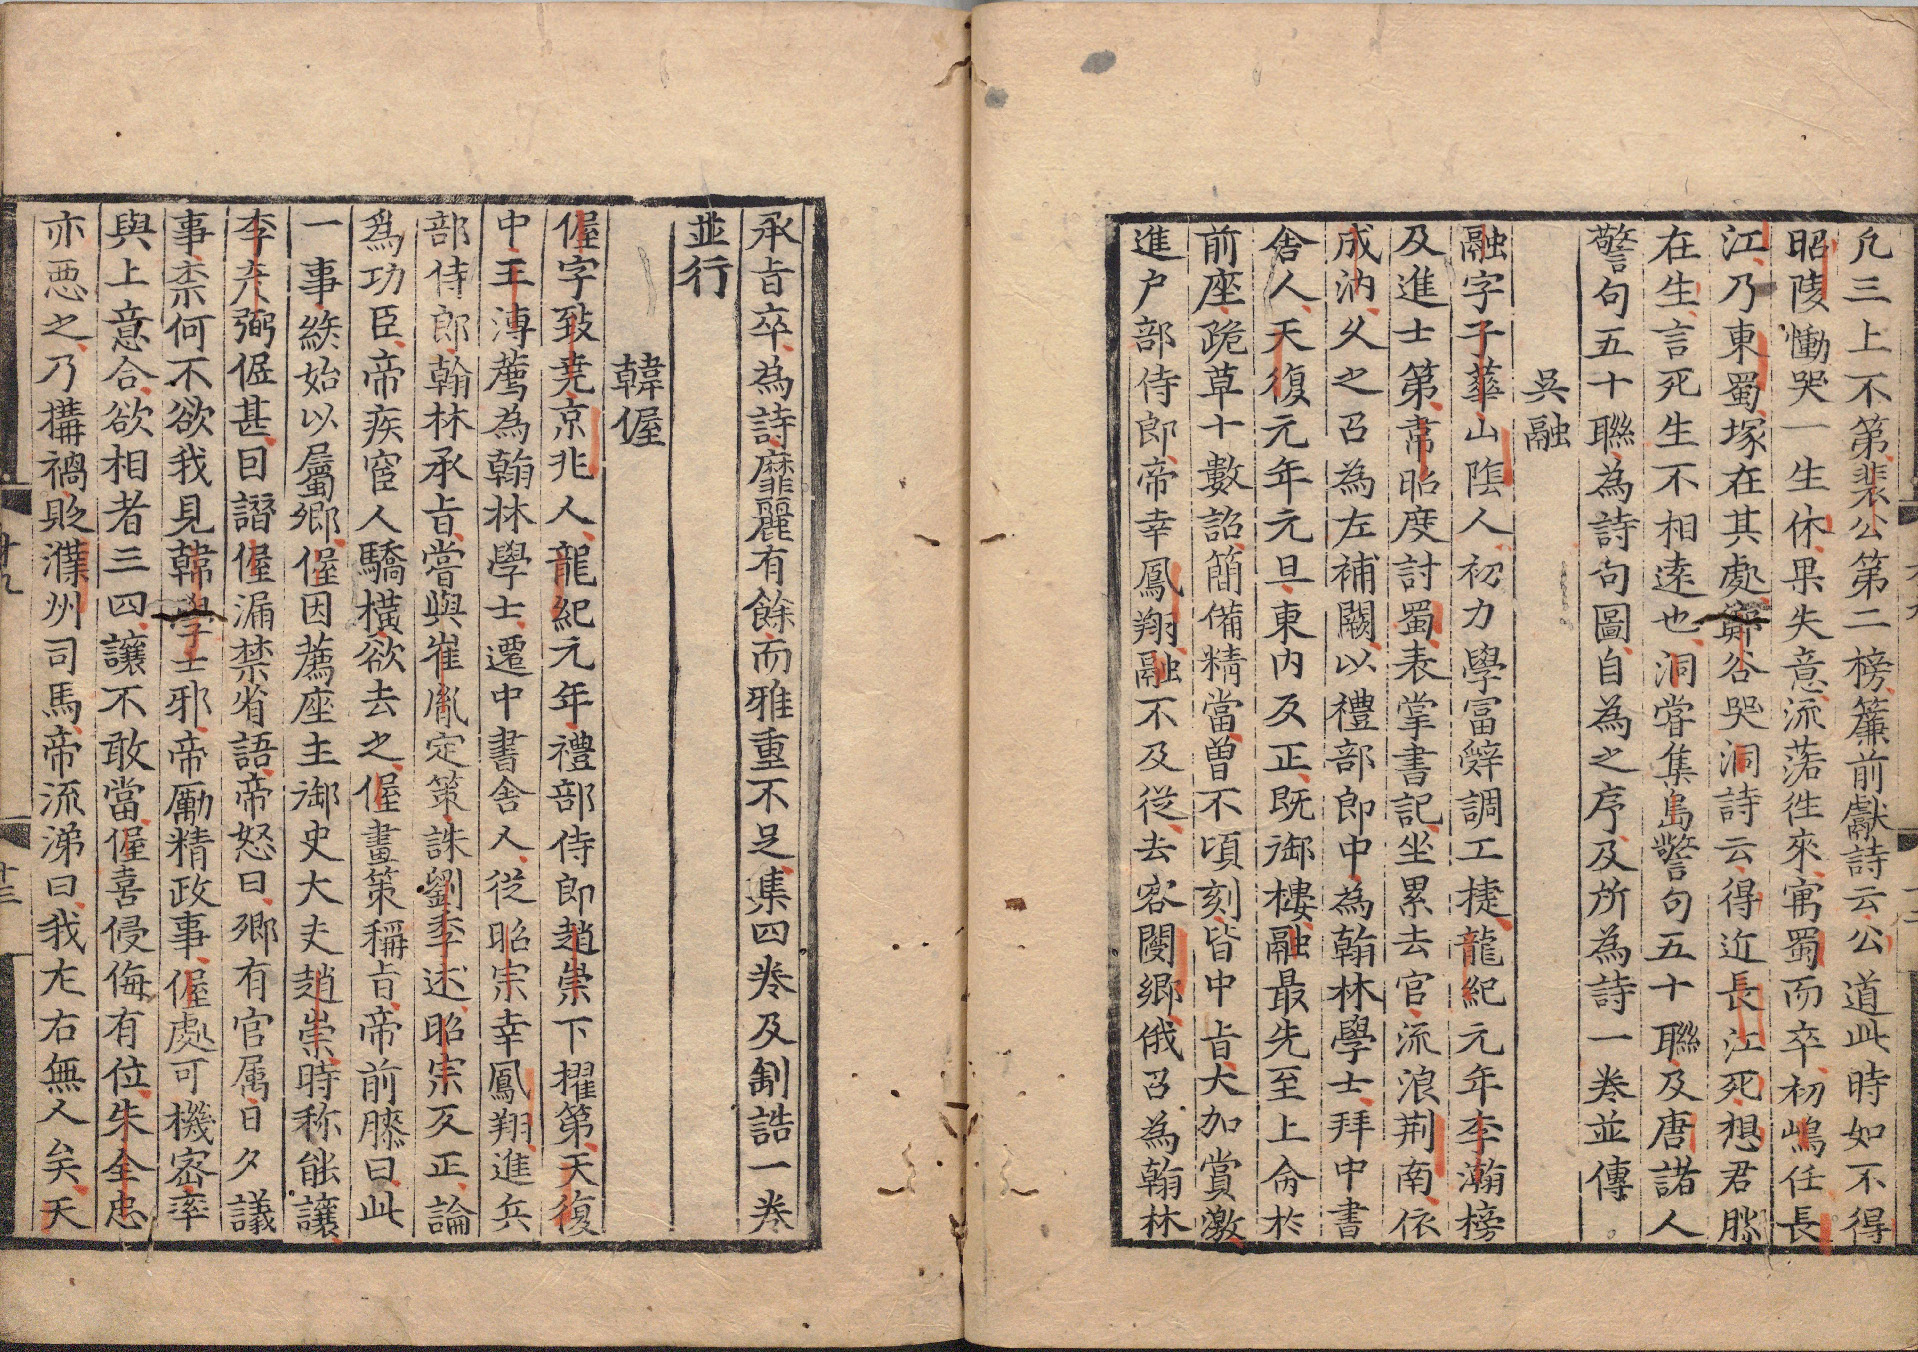 凢三上不第裴公第二榜簾前獻詩云公道此時如不得
昭陵慟哭一生休果失意流落徃來寓蜀而卒初嶋任長
江乃東蜀塚在其處鄭谷哭洞詩云得近長江死想君勝
在生言死生不相遠也洞甞集島警句五十聯及唐諸人
警句五十聯為詩句圖自為之序及所為詩一卷並傳
吳融
融字子華山隂人初力學富辤調工捷龍紀元年李瀚榜
及進士第韋昭度討蜀表掌書記坐累去官流浪荆南依
成汭久之召為左補闕以禮部郎中為翰林學士拜中書
舍人天復元年元旦東内反正既御樓融最先至上命於
前座跪草十數詔簡備精當曽不頃刻皆中㫖大加賞激
進户部侍郎帝幸鳳翔融不及從去客閿鄉俄召為翰林
承㫖卒為詩靡麗有餘而雅重不足集四卷及制誥一卷
並行
韓偓
偓字致尭京兆人龍紀元年禮部侍郎趙崇下擢第天復
中王溥薦為翰林學士遷中書舍人從昭宗幸鳳翔進兵
部侍郎翰林承㫖嘗與崔胤定策誅劉季述昭宗反正論
爲功臣帝疾宦人驕橫欲去之偓畫策稱㫖帝前膝曰此
一事終始以屬卿偓因薦座主御史大夫趙崇時称能讓
李彦弼倨甚因譖偓漏禁省語帝怒曰卿有官属日夕議
事柰何不欲我見韓學士邪帝勵精政事偓處可機宻率
與上意合欲相者三四讓不敢當偓喜侵侮有位朱全忠
亦惡之乃搆禍貶濮州司馬帝流涕曰我左右無人矣天